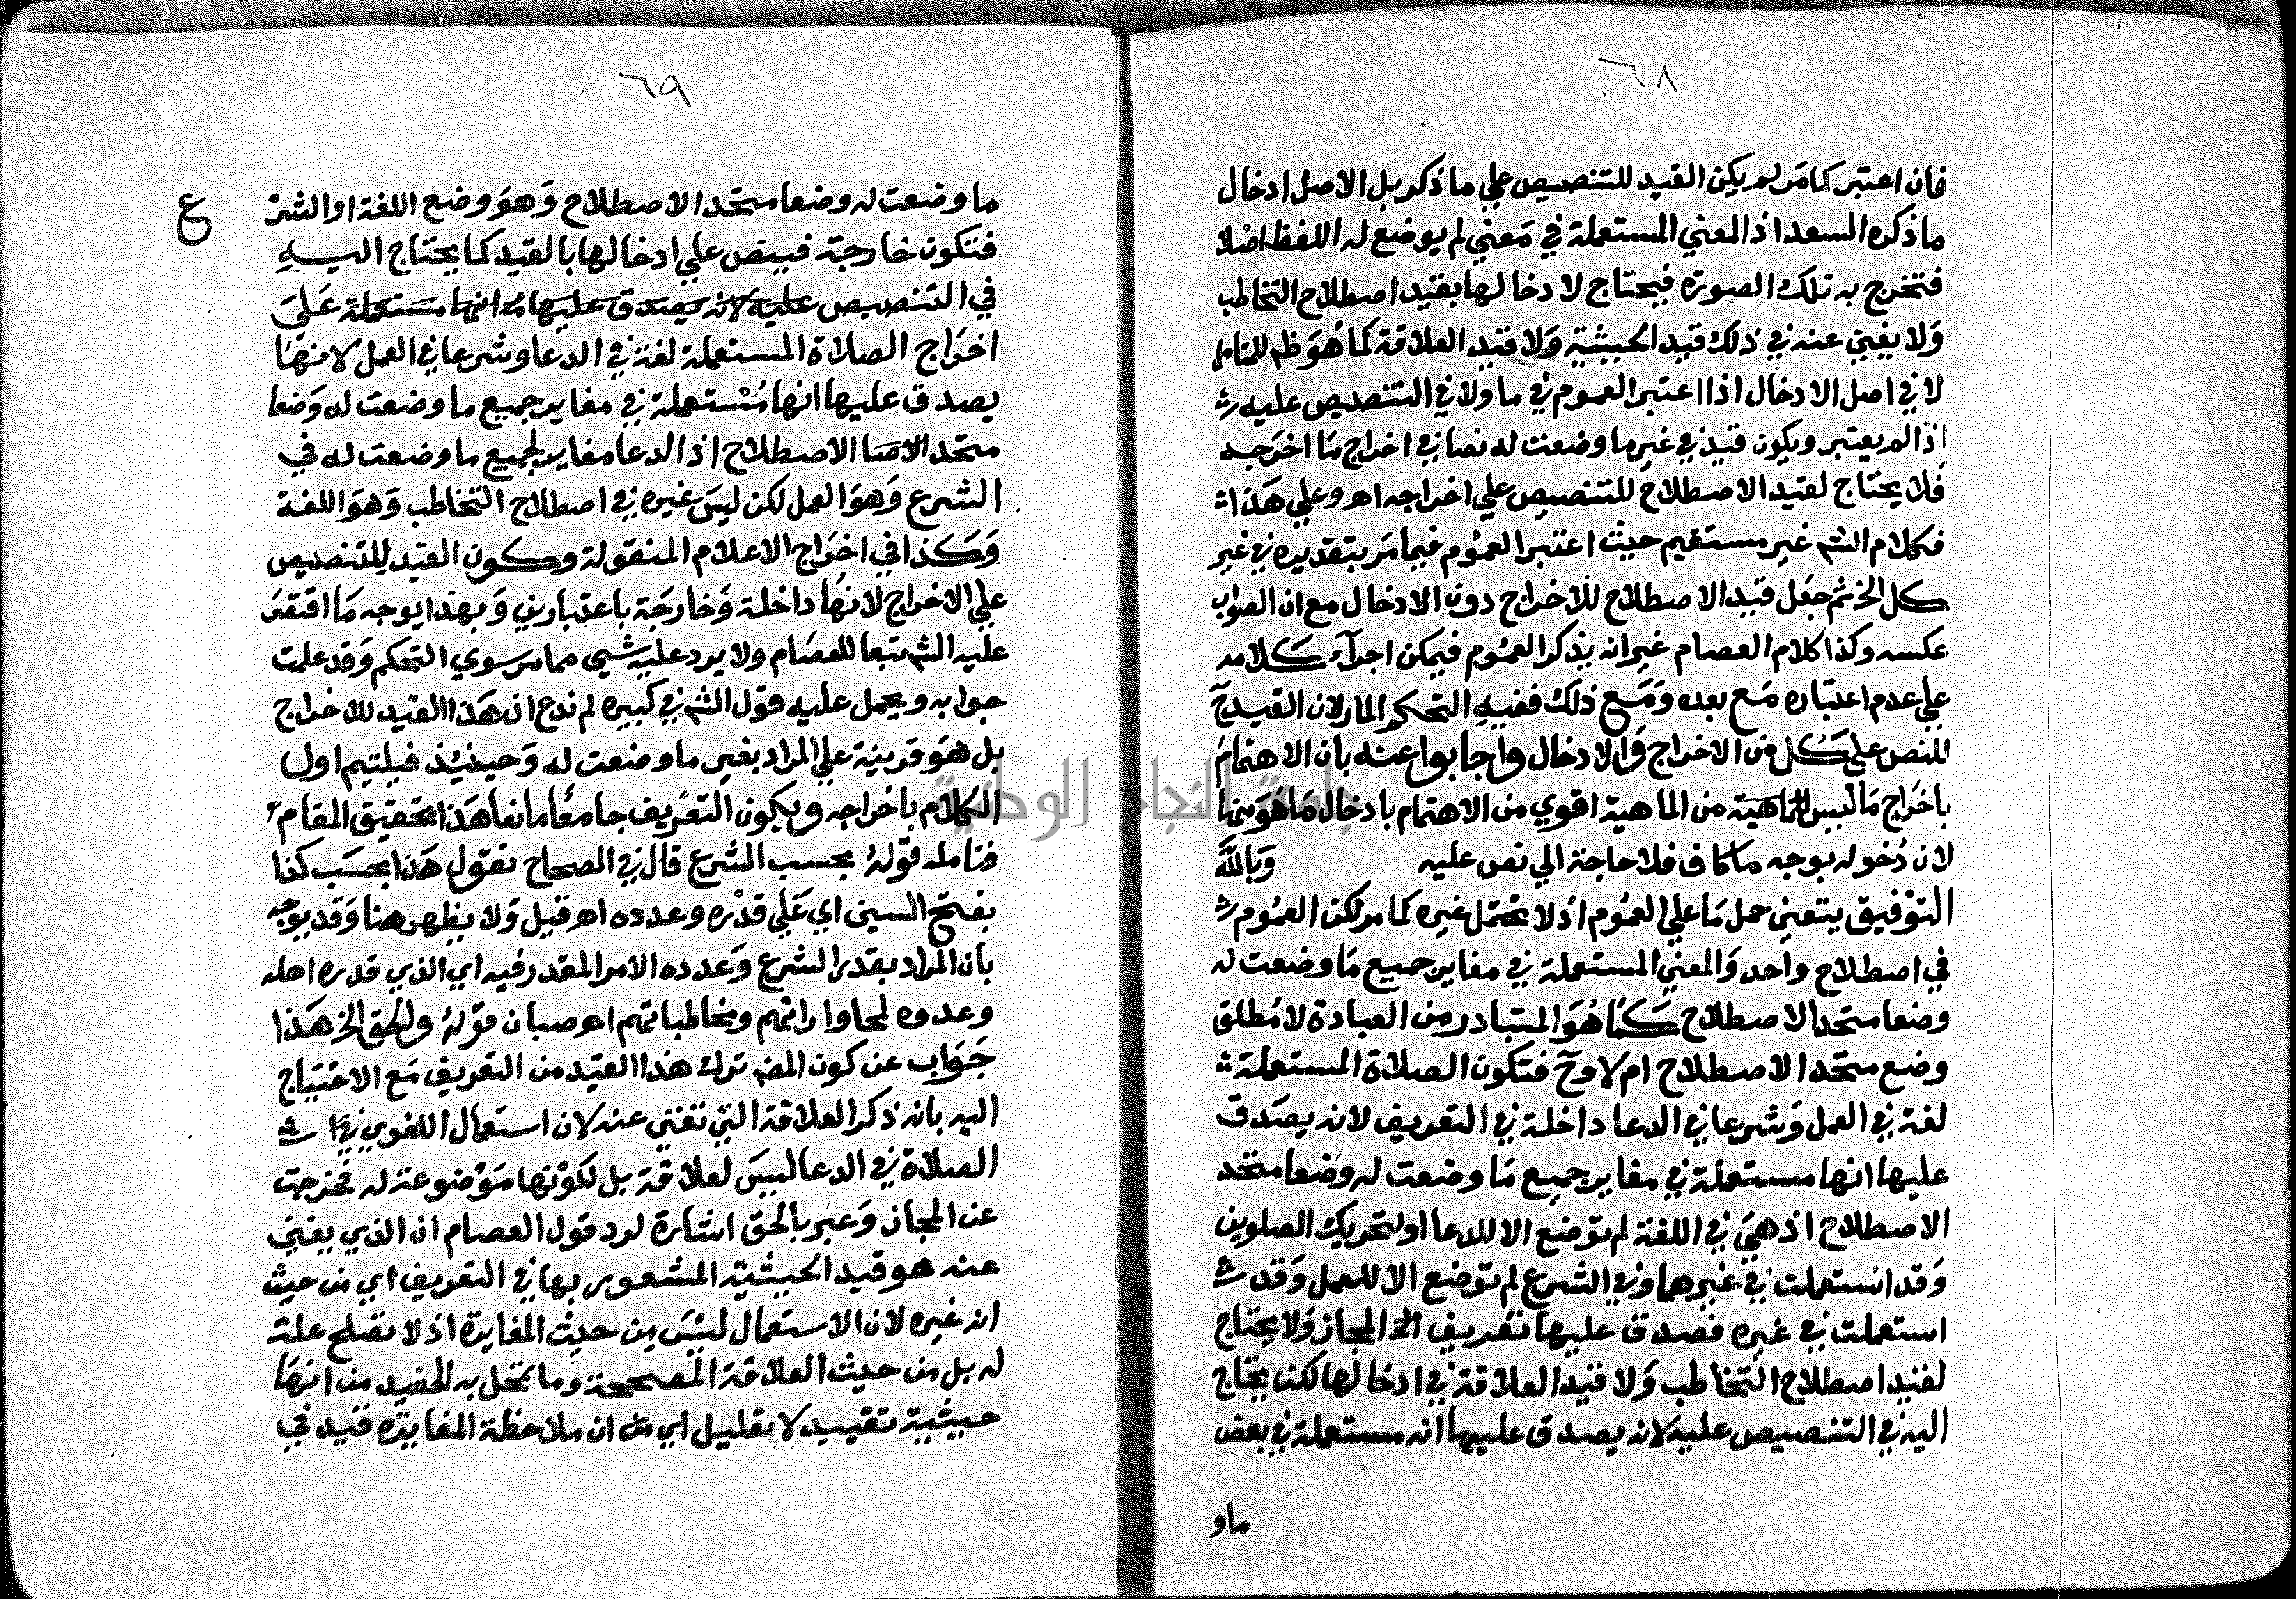 ٦٨
فان اعتبر كما مر لم يكن القيد للتنصيص علي ما ذكر بل الاصل ادخال
ما ذكره السعد اذ المعني المستعملة في معني لم يوضع له اللفظ اصلا
فتخرج به تلك الصورة فيحتاج لادخالها بقيد اصطلاح التخاطب
ولا يغني عنه في ذلك قيد الحيثية ولا قيد العلاقة كما هو ظم للمتامل
لا في اصل الادخال اذا اعتبر العموم في ما ولا في التنصيص عليه
اذا لم يعتبر ويكون قيد في غير ما وضعت له نصا في اخراج ما اخرجه
فلا يحتاج لقيد الاصطلاح للتنصيص علي اخراجه اهر وعلي هذا
فكلام الشم غير مستقيم حيث اعتبر العموم فيما مر بتقديره في غير
كل الخ ثم جعل قيد الاصطلاح للاخراج دون الادخال مع ان الصواب
عكسه وكذا كلام العصام غير انه بذكر العموم فيمكن اجراء كلامه
علي عدم اعتباره مع بعده ومع ذلك ففيه التحكم المار لان القيد ح
المنص علي كل من الاخراج والادخال واجابوا عنه بان الاهتمام
باخراج ما ليس للماهية من الماهية اقوي من الاهتمام بادخال ما هو منها
لان دخوله بوجه ما كاف فلا حاجة الي نص عليه وبالله
التوفيق يتعين حمل ما علي العموم اذ لا تحتمل غيره كما مر لكن العموم
في اصطلاح واحد والمعني المستعملة في مغاير جميع ما وضعت له
وضعا متحد الاصطلاح كما هو المتبادر من العبادة لا مطلق
وضع متحد الاصطلاح ام لا وح فتكون الصلاة المستعملة
لغة في العمل وشرعا في الدعا داخلة في التعريف لانه يصدق
عليها انها مستعملة في مغاير جميع ما وضعت له وضعا متحد
الاصطلاح اذ هي في اللغة لم توضع الا للدعا او لتحريك الصلوين
وقد استعملت في غيرهما وفي الشرع لم توضع الا للعمل وقد
استعملت في غيره فصدق عليها تعريف الخ المجاز ولا يحتاج
لقيد اصطلاح التخاطب ولا قيد العلاقة في ادخالها لكن يحتاج
اليه في التنصيص عليه لانه يصدق عليها انه مستعملة في بعض
ماو
٦٩
ما وضعت له وضعا متحد الاصطلاح وهو وضع اللغة او الشر
ع
فتكون خارجة فينص علي ادخالها بالقيد كما يحتاج اليه
في التنصيص عليه لانه يصدق عليها انها مستعملة علي
اخراج الصلاة المستعملة لغة في الدعا وشرعا في العمل لانها
يصدق عليها انها مستعملة في مغاير جميع ما وضعت له وضعا
متحد الاصا الاصطلاح اذ الدعا مغاير لجميع ما وضعت له في
الشرع وهو العمل لكن ليس غيره في اصطلاح التخاطب وهو اللغة
وكذا في اخراج الاعلام المنقولة وكون القيد للتنصيص
علي الاخراج لانها داخلة وخارجة باعتبارين وبهذا يوجه ما اقتقي
عليه الشم تبعا للعصام ولا يرد عليه شي مما مر سوي التحكم وقد علمت
جوابه ويحمل عليه قول الشم في كبيره لم ندع ان هذا القيد للاخراج
بل هو قرينة علي المراد بغير ما وضعت له وحينئذ فيلتيم اول
الكلام باخراجه ويكون التعريف جامعا مانعا هذا تحقيق المقام
فتامله قوله بحسب الشرع قال في الصحاح تقول هذا بحسب كذا
بفتح السين اي علي قدره وعدده اهر قيل ولا يظهر هنا وقد يوجه
بان المراد بقدر الشرع وعدده الامر المقدر فيه اي الذي قدره اهله
وعدوه لمحاوراتهم ومخاطباتهم اهر صبان قوله والحق الخ هذا
جواب عن كون المصم ترك هذا القيد من التعريف مع الاحتياج
اليه بانه ذكر العلاقة التي تغني عنه لان استعمال اللغوي
الصلاة في الدعا ليس لعلاقة بل لكونها موضوعة له فخرجت
عن المجاز وعبر بالحق اشارة لرد قول العصام ان الذي يغني
عنه هو قيد الحيثية المشعور بها في التعريف اي من حيث
انه غيره لان الاستعمال ليس من حيث المغايرة اذ لا تصلح علة
له بل من حيث العلاقة المصححة وما تمحل به الحفيد من انها
حيثية تقييد لا تعليل اي ان ملاحظة المغايرة قيد في